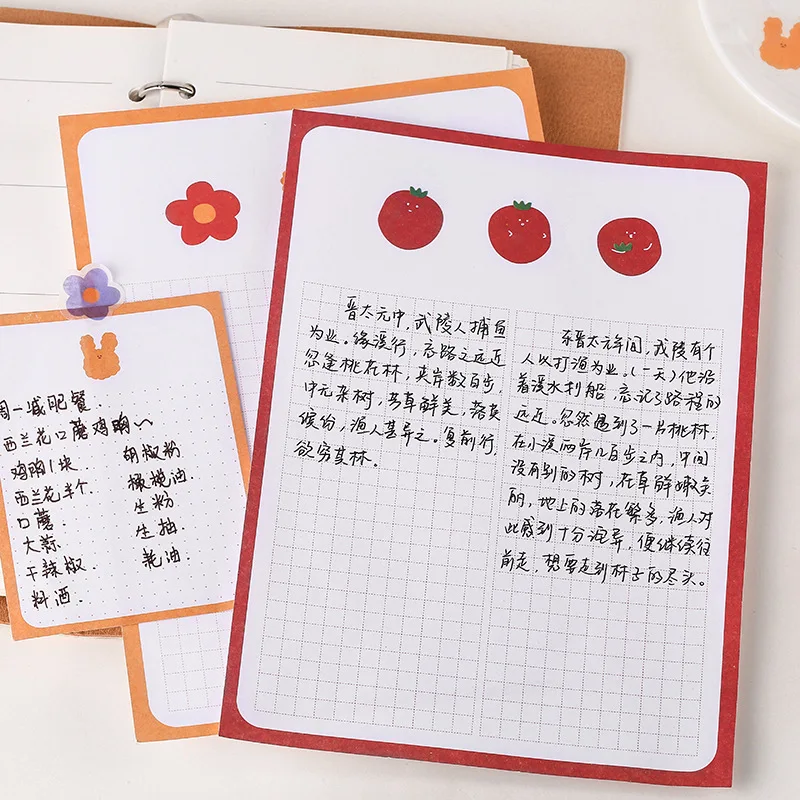 周一减肥餐.
西兰花口蘑鸡胸
鸡胸1块.
西兰花半个.
口蘑.
大蒜.
干辣椒.
料酒.
胡椒粉
橄榄油.
生粉
生抽.
耗油.
晋太元中,武陵人捕鱼
为业。缘溪行,忘路之远近
忽逢桃花林,夹岸数百步,
中无杂树,芳草鲜美,落英
缤纷,渔人甚异之。复前行,
欲穷其林。
东晋太元年间,武陵有个
人以打渔为业。(一天)他沿
着溪水划船,忘记了路程的
远近。忽然遇到了一片桃林,
在小溪两岸几百步之内,中间
没有别的树,花草鲜嫩美
丽,地上的落花繁多,渔人对
此感到十分诧异,便继续往
前走,想要走到林子的尽头。